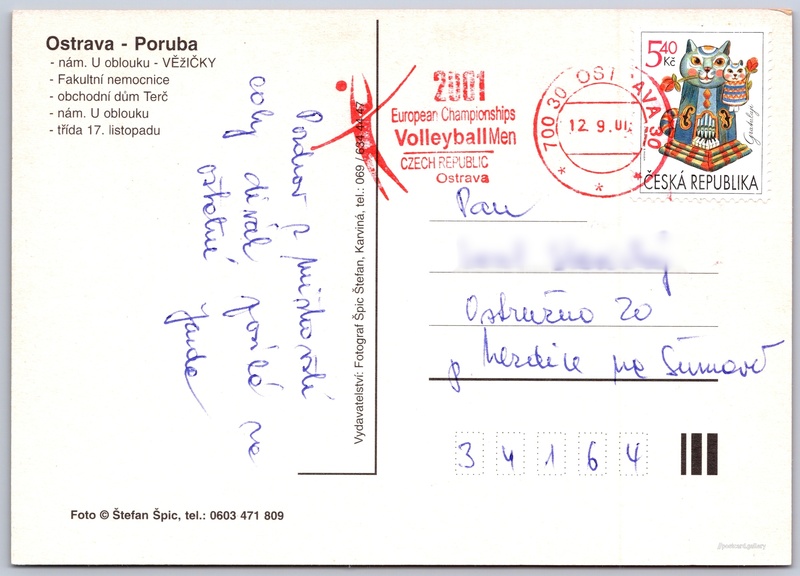 Ostrava - Poruba
- nám. U oblouku - VĚžIČKY
- Fakultní nemocnice
- obchodní dům Terč
- nám. U oblouku
- třída 17. listopadu
Pozdrav z mistrovství
coby divák posílá ze
Ostravy
Jarda
Vydavatelství: Fotograf Špic Štefan, Karviná, tel.: 069 / 634 44 47
2001
European Championships
Volleyball Men
CZECH REPUBLIC
Ostrava
700 30 OSTRAVA 30
12. 9. 01
5,40
Kč
ČESKÁ REPUBLIKA
Pan
Ostružno 20
p. Nezdice na Šumavě
34164
Foto © Štefan Špic, tel.: 0603 471 809